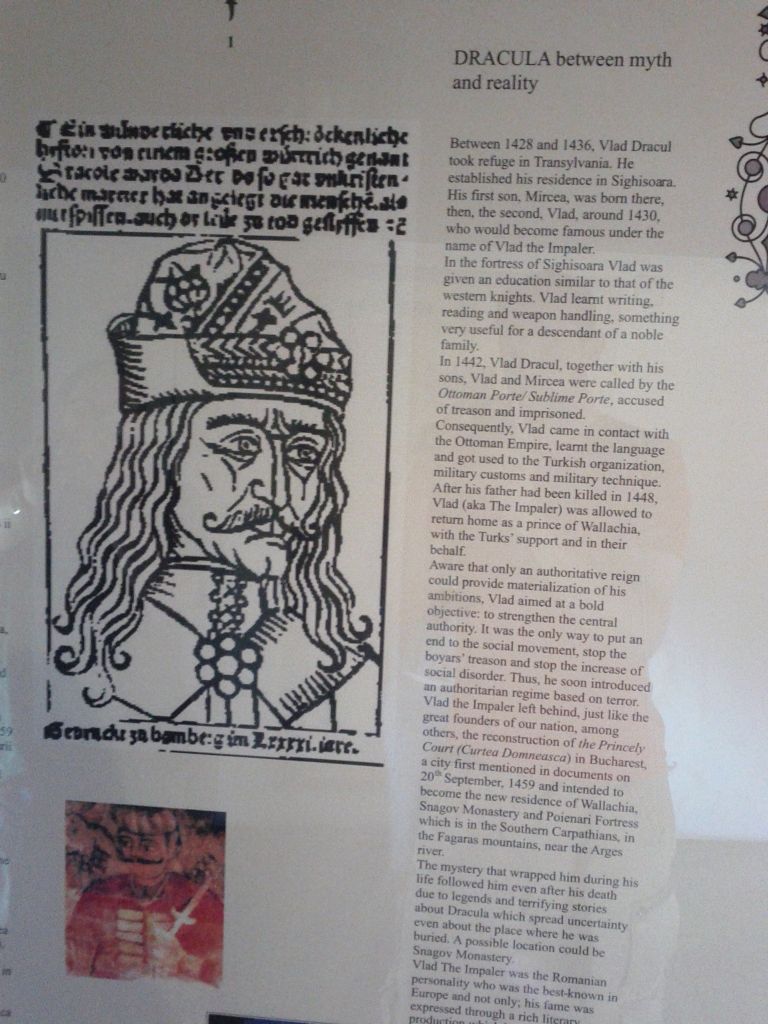 1
DRACULA between myth
and reality
Between 1428 and 1436, Vlad Dracul
took refuge in Transylvania. He
established his residence in Sighisoara.
His first son, Mircea, was born there,
then, the second, Vlad, around 1430,
who would become famous under the
name of Vlad the Impaler.
In the fortress of Sighisoara Vlad was
given an education similar to that of the
western knights. Vlad learnt writing,
reading and weapon handling, something
very useful for a descendant of a noble
family.
In 1442, Vlad Dracul, together with his
sons, Vlad and Mircea were called by the
Ottoman Porte/ Sublime Porte, accused
of treason and imprisoned.
Consequently, Vlad came in contact with
the Ottoman Empire, learnt the language
and got used to the Turkish organization,
military customs and military technique.
After his father had been killed in 1448,
Vlad (aka The Impaler) was allowed to
return home as a prince of Wallachia,
with the Turks' support and in their
behalf.
Aware that only an authoritative reign
could provide materialization of his
ambitions, Vlad aimed at a bold
objective: to strengthen the central
authority. It was the only way to put an
end to the social movement, stop the
boyars' treason and stop the increase of
social disorder. Thus, he soon introduced
an authoritarian regime based on terror.
Vlad the Impaler left behind, just like the
great founders of our nation, among
others, the reconstruction of the Princely
Court (Curtea Domneasca) in Bucharest,
a city first mentioned in documents on
20th September, 1459 and intended to
become the new residence of Wallachia,
Snagov Monastery and Poienari Fortress
which is in the Southern Carpathians, in
the Fagaras mountains, near the Arges
river.
The mystery that wrapped him during his
life followed him even after his death
due to legends and terrifying stories
about Dracula which spread uncertainty
even about the place where he was
buried. A possible location could be
Snagov Monastery.
Vlad The Impaler was the Romanian
personality who was the best-known in
Europe and not only; his fame was
expressed through a rich literary
production